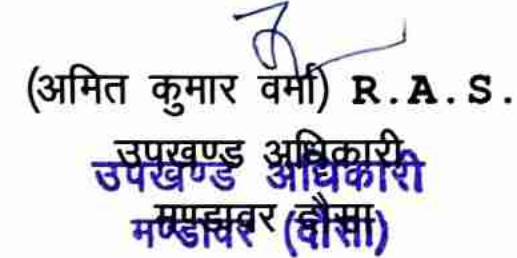 (अमित कुमार वर्मा) R.A.S.
उपखण्ड अधिकारी
उपखण्ड अधिकारी
मण्डावर दौसा
मण्डावर (दौसा)